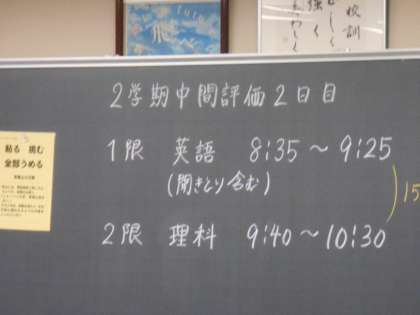 校訓
２学期中間評価２日目
１限 英語 8:35～9:25
(聞きとり含む)
15
２限 理科 9:40～10:30
粘る 挑む
全部うめる